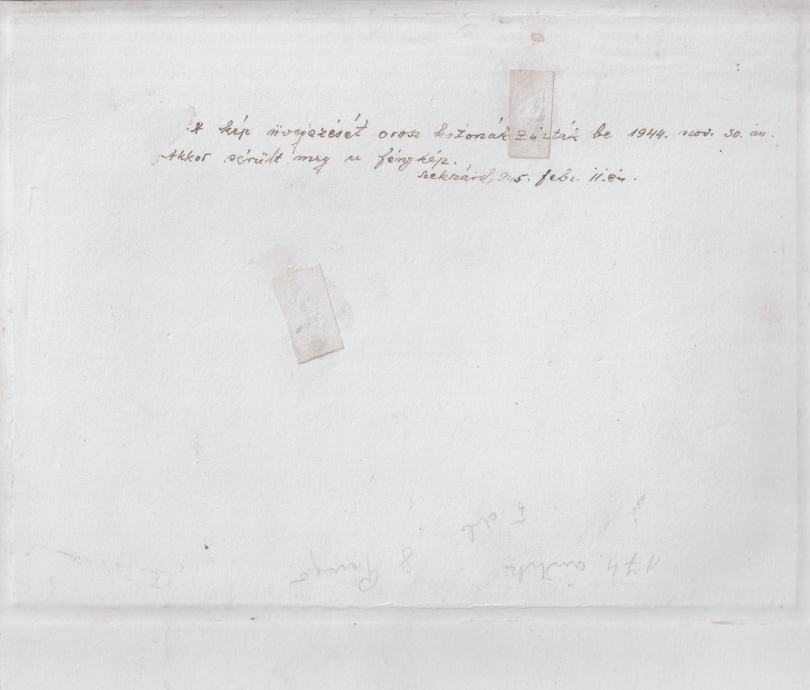 A kép üvegezését orosz katonák zúzták be 1944. nov. 30. án.
Akkor sérült meg a fénykép.
Szekszárd, 945. febr. 11. én.
5 db
174 antik 8 Pengő